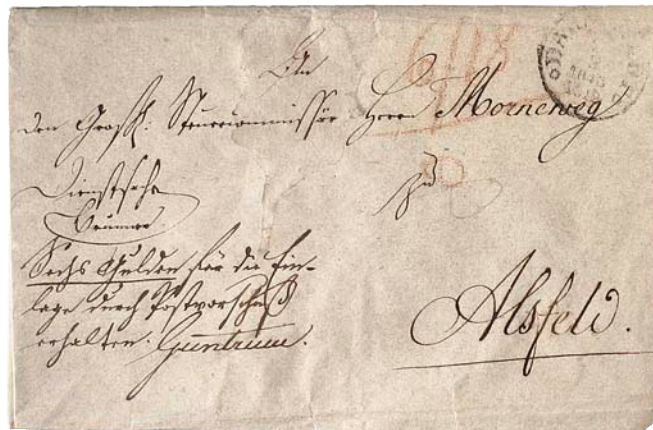 An
den Großh: Steuercommissär Herrn Morneweg
zu
Alsfeld.
Dienstsache
Sechs Gulden für die Ein-
lage durch Postvorschuß
erhalten. Guntrum.